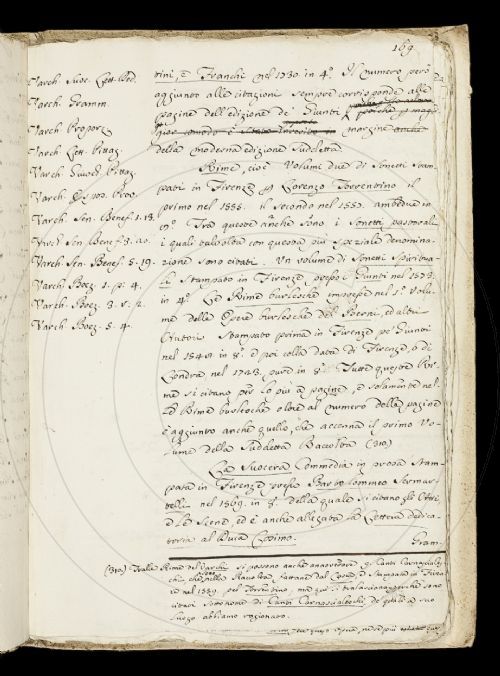 169
Varch. Suoc. Lett. Ded.
Varch. Gramm.
Varch. Proporz.
Varch. Lett. Pittag.
Varch. Pittag.
Varch. Espos. Prov.
Varch. Sen. Benef. 1. 13.
Varch Sen. Benef. 3. 20.
Varch. Sen. Benef. 5. 19.
Varch. Boez. 1. p. 4.
Varch. Boez. 3. r. 2.
Varch. Boez. 5. 4.
tini, e Franchi nel 1730. in 4°. Il numero però
aggiunto alle citazioni sempre corrisponde alle
pagine dell'edizione de' Giunti
margine
della moderna edizione suddetta.
Rime, cioè Volume due di Sonetti stam-
pati in Firenze Lorenzo Torrentino il
primo nel 1555. il secondo nel 1557. ambedue in
8°. Tra queste anche sono i Sonetti pastorali
i quali con questa più speziale denomina-
zione sono citati. Un volume di Sonetti Spiritua-
li Stampato in Firenze presso i Giunti nel 1573.
in 4°. Le Rime burlesche impresse nel 1°. Volu-
me delle Opere burlesche del Berni, ed altri
Autori Stampato prima in Firenze pe' Giunti
nel 1548. in 8°. e poi colla data di Firenze, o di
Londra nel 1723. pure in 8°. Tutte queste Ri-
me si citano per lo più a pagine, e solamente nel-
le Rime burlesche oltre al numero delle pagine
è aggiunto anche quello, che accenna il primo Vo-
lume della Suddetta Raccolta (310.)
La Suocera Commedia in prosa Stam-
pata in Firenze presso Bartolommeo Sermar-
telli nel 1569. in 8°. della quale si citano gli Atti
e le Scene, ed è anche allegata la Lettera dedica-
toria al Duca Cosimo.
Gram-
(310.) Tralle Rime del Varchi si possono anche annoverare i Canti Carnasciale-
schi, che nella Raccolta fattane dal e Stampata in Firen-
ze nel 1559. pel Torrentino, ma perchè sono
citati sotto nome di Canti Carnascialeschi, de' quali a suo
luogo abbiamo ragionato.